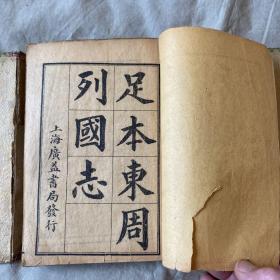 足本東周
列國志
上海廣益書局發行